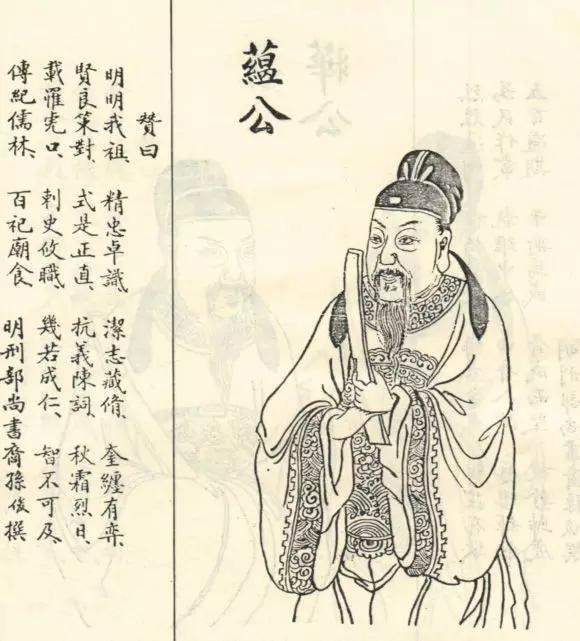 蘊公
贊曰
明明我祖、精忠卓識 潔志藏脩、奎纏有奕、
賢良策對、式是正直、抗義陳詞、秋霜烈日、
載罹虎口、刺史攸職、幾若成仁、智不可及、
傳紀儒林、百祀廟食 明刑部尚書裔孫俊撰